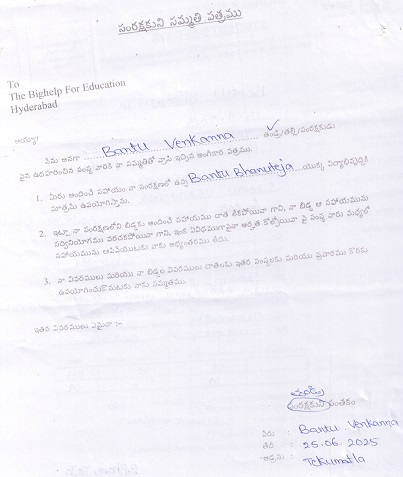 సంరక్షకుని సమ్మతి పత్రము
To
The Bighelp For Education
Hyderabad
అయ్యా!
నేను అనగా ........Bantu Venkanna........ తండ్రి/తల్లి/సంరక్షకుడు
పైన ఉదహరించిన సంస్థ వారికి నా సమ్మతితో వ్రాసి ఇచ్చిన అంగీకార పత్రము.
1. మీరు అందించే సహాయం నా సంరక్షణలో ఉన్న Bantu Bhanuteja ...యొక్క విద్యాభివృద్ధికి
మాత్రమే ఉపయోగిస్తాను.
2. ఇట్లా నా సంరక్షణలోని బిడ్డకు అందించే సహాయము దాత లేకపోయినా గాని, నా బిడ్డ ఆ సహాయమును
సద్వినియోగము పరచకపోయినా గాని, ఇంక ఏవిధముగానైనా అర్హత కోల్పోయినా పై సంస్థ వారు మధ్యలో
సహాయమును ఆపివేయుటకు నాకు అభ్యంతరము లేదు.
3. నా వివరములు మరియు నా బిడ్డల వివరములు దాతలకు ఇతర సంస్థలకు మరియు ప్రచారము కొరకు
ఉపయోగించుకొనుటకు నాకు సమ్మతము.
ఇతర వివరములు ఏమైనా :-
తండ్రి
సంరక్షకుని సంతకం
పేరు : Bantu Venkanna
తేది : 25.06.2025
అడ్రసు : Tekumatla